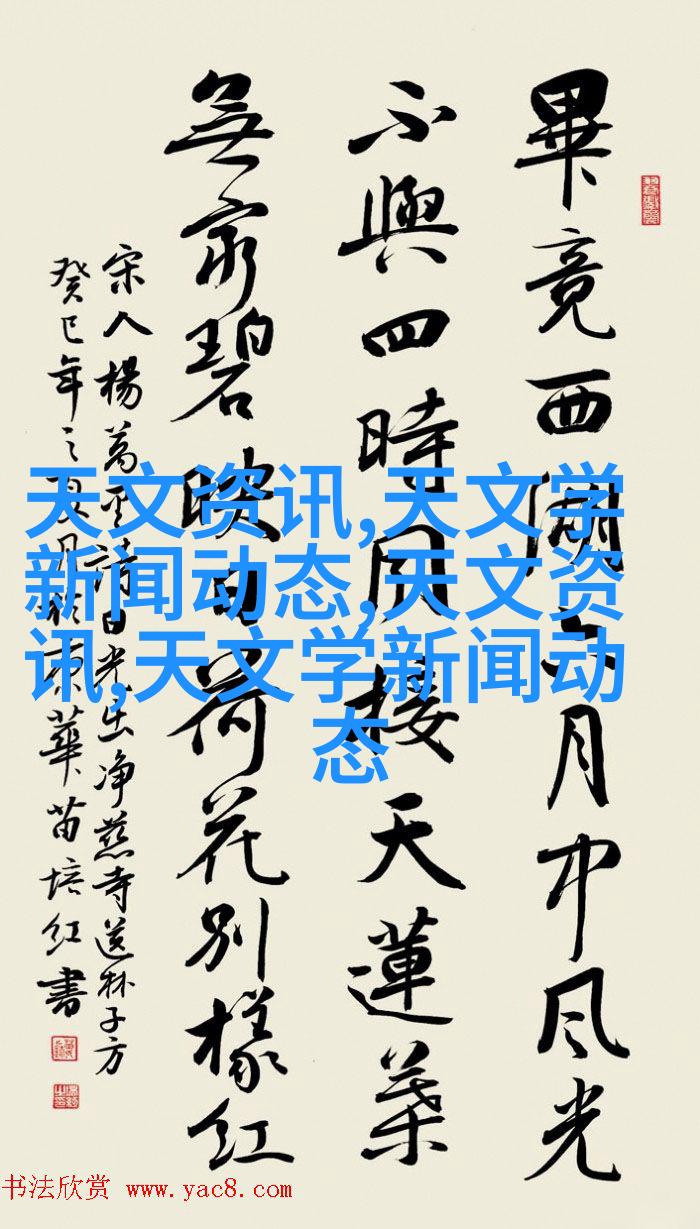 畢竟西湖六月中风光
不與四時同接天蓮葉
無窮碧映日荷花別樣红
宋人楊萬里詩曉出净慈寺送林子方
癸巳年之夏月於京華苗培红書
天文资讯,天文学
新闻动态,天文资
讯,天文学新闻动
态
书法欣赏 www.yac8.com